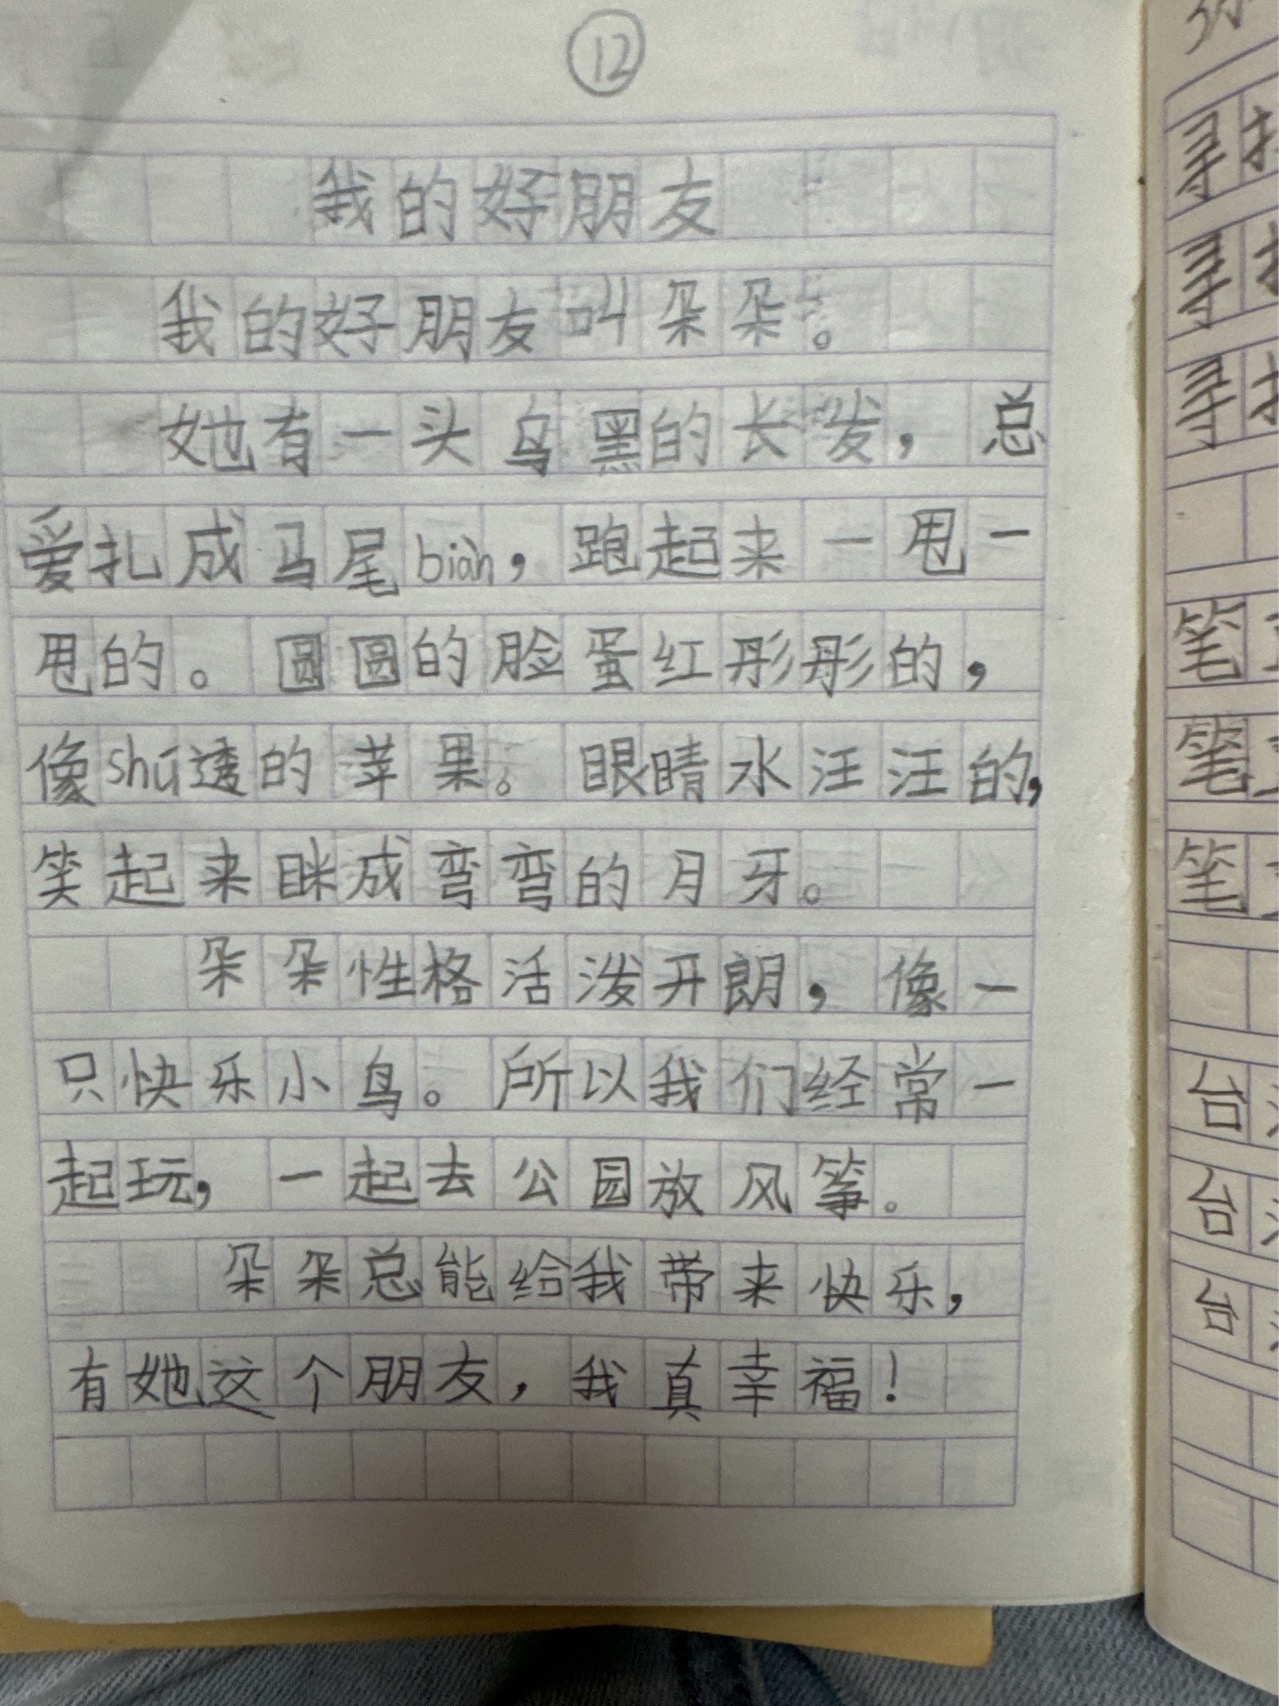 12
我的好朋友
我的好朋友叫朵朵。
她有一头乌黑的长发，总
爱扎成马尾biàn，跑起来一甩一
甩的。圆圆的脸蛋红彤彤的，
像shú透的苹果。眼睛水汪汪的，
笑起来眯成弯弯的月牙。
朵朵性格活泼开朗，像一
只快乐小鸟。所以我们经常一
起玩，一起去公园放风筝。
朵朵总能给我带来快乐，
有她这个朋友，我真幸福！
寻
寻
寻
笔
笔
笔
台
台
台